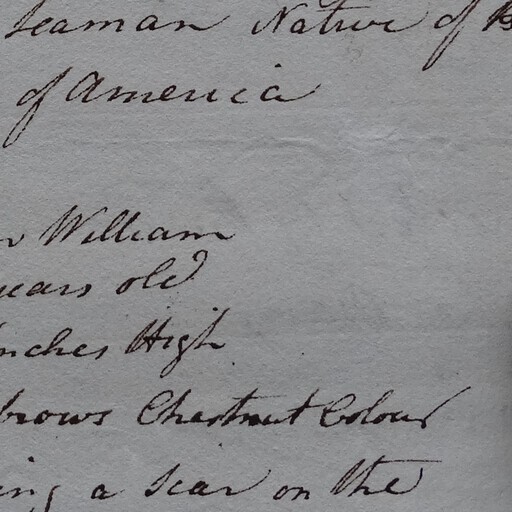 Seaman Native of B
of America
n William
years old
Inches High
brows Chestnut Colour
ing a scar on the